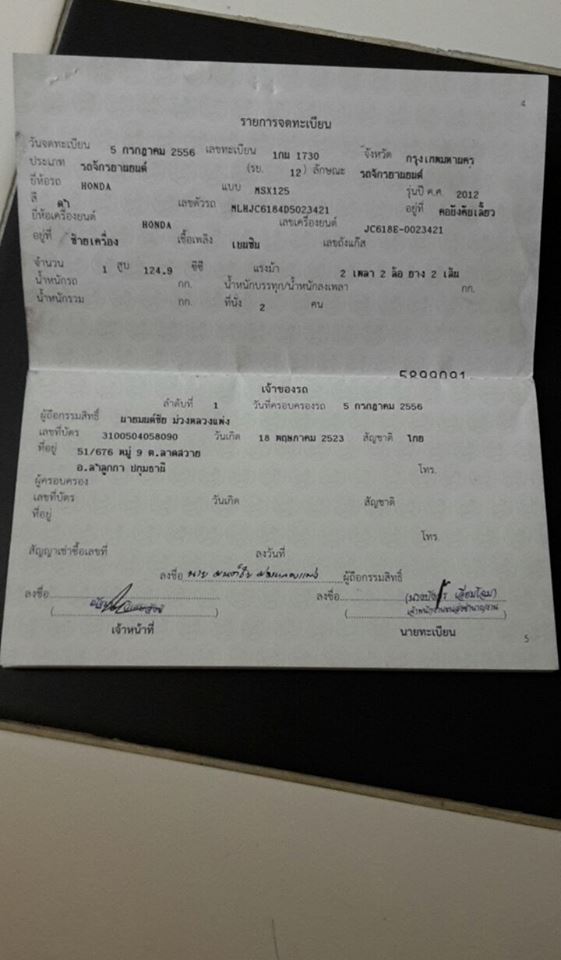 4
รายการจดทะเบียน
วันจดทะเบียน 5 กรกฎาคม 2556 เลขทะเบียน 1กม 1730 จังหวัด กรุงเทพมหานคร
ประเภท รถจักรยานยนต์ (รย. 12) ลักษณะ รถจักรยานยนต์
ยี่ห้อรถ HONDA แบบ MSX125 รุ่นปี ค.ศ. 2012
สี ดำ เลขตัวรถ MLHJC6184D5023421 อยู่ที่ คอบังคับเลี้ยว
ยี่ห้อเครื่องยนต์ HONDA เลขเครื่องยนต์ JC618E-0023421
อยู่ที่ ซ้ายเครื่อง เชื้อเพลิง เบนซิน เลขถังแก๊ส
จำนวน 1 สูบ 124.9 ซีซี แรงม้า 2 เพลา 2 ล้อ ยาง 2 เส้น
น้ำหนักรถ กก. น้ำหนักบรรทุก/น้ำหนักลงเพลา กก.
น้ำหนักรวม กก. ที่นั่ง 2 คน
5899091
เจ้าของรถ
ลำดับที่ 1 วันที่ครอบครองรถ 5 กรกฎาคม 2556
ผู้ถือกรรมสิทธิ์ นายมนต์ชัย ม่วงหลวงแพ่ง
เลขที่บัตร 3100504058090 วันเกิด 18 พฤษภาคม 2523 สัญชาติ ไทย
ที่อยู่ 51/676 หมู่ 9 ต.ลาดสวาย
อ.ลำลูกกา ปทุมธานี โทร.
ผู้ครอบครอง
เลขที่บัตร วันเกิด สัญชาติ
ที่อยู่
โทร
สัญญาเช่าซื้อเลขที่ ลงวันที่
ลงชื่อ นาย ผู้ถือกรรมสิทธิ์
ลงชื่อ ลงชื่อ
เจ้าหน้าที่ นายทะเบียน
5